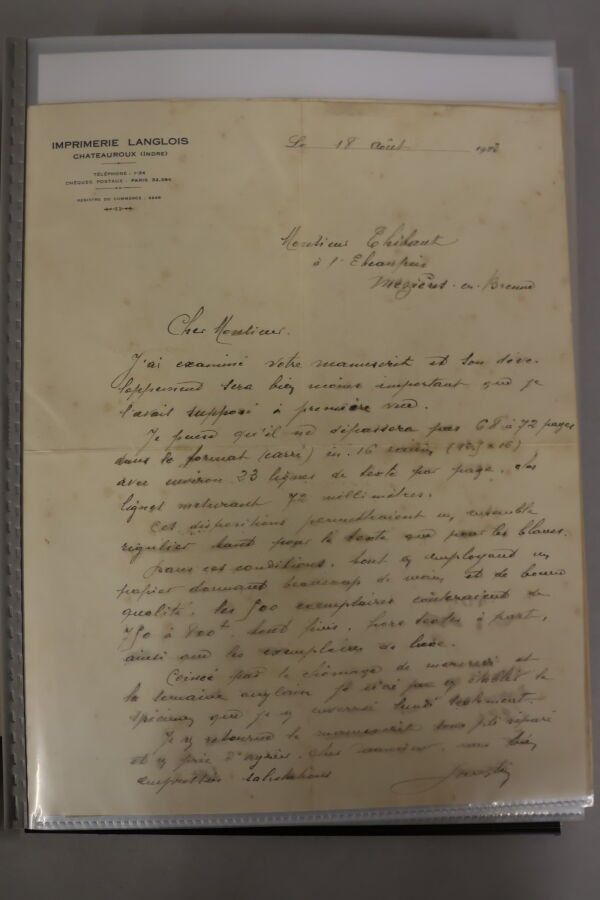 IMPRIMERIE LANGLOIS
CHATEAUROUX (INDRE)
TÉLÉPHONE : 1-24
CHÈQUES POSTAUX : PARIS
REGISTRE DU COMMERCE :
Le 18 Août 193
Monsieur Thibaut
à l'
Mézières-en-Brenne
Cher Monsieur.
J'ai examiné votre manuscrit et son déve-
loppement sera bien moins important que je
l'avais supposé à première vue.
Je pense qu'il ne dépassera pas 68 à 72 pages
dans le format (carré) in-16
avec environ 23 lignes de texte par page, les
lignes mesurant 72 millimètres.
Ces dispositions permettraient un ensemble
régulier tant pour le texte que pour les blancs.
Dans ces conditions, tout en employant un
papier donnant beaucoup de main et de bonne
qualité, les 500 exemplaires coûteraient de
750 à 800f tout finis, hors textes à part,
ainsi que les exemplaires de luxe.
Coincé par le chômage de mercredi et
la semaine anglaise je n'ai pu en établir le
spécimen que je vous enverrai lundi seulement.
Je vous retourne le manuscrit sous pli séparé
et vous prie d'agréer, cher monsieur, mes bien
empressées salutations